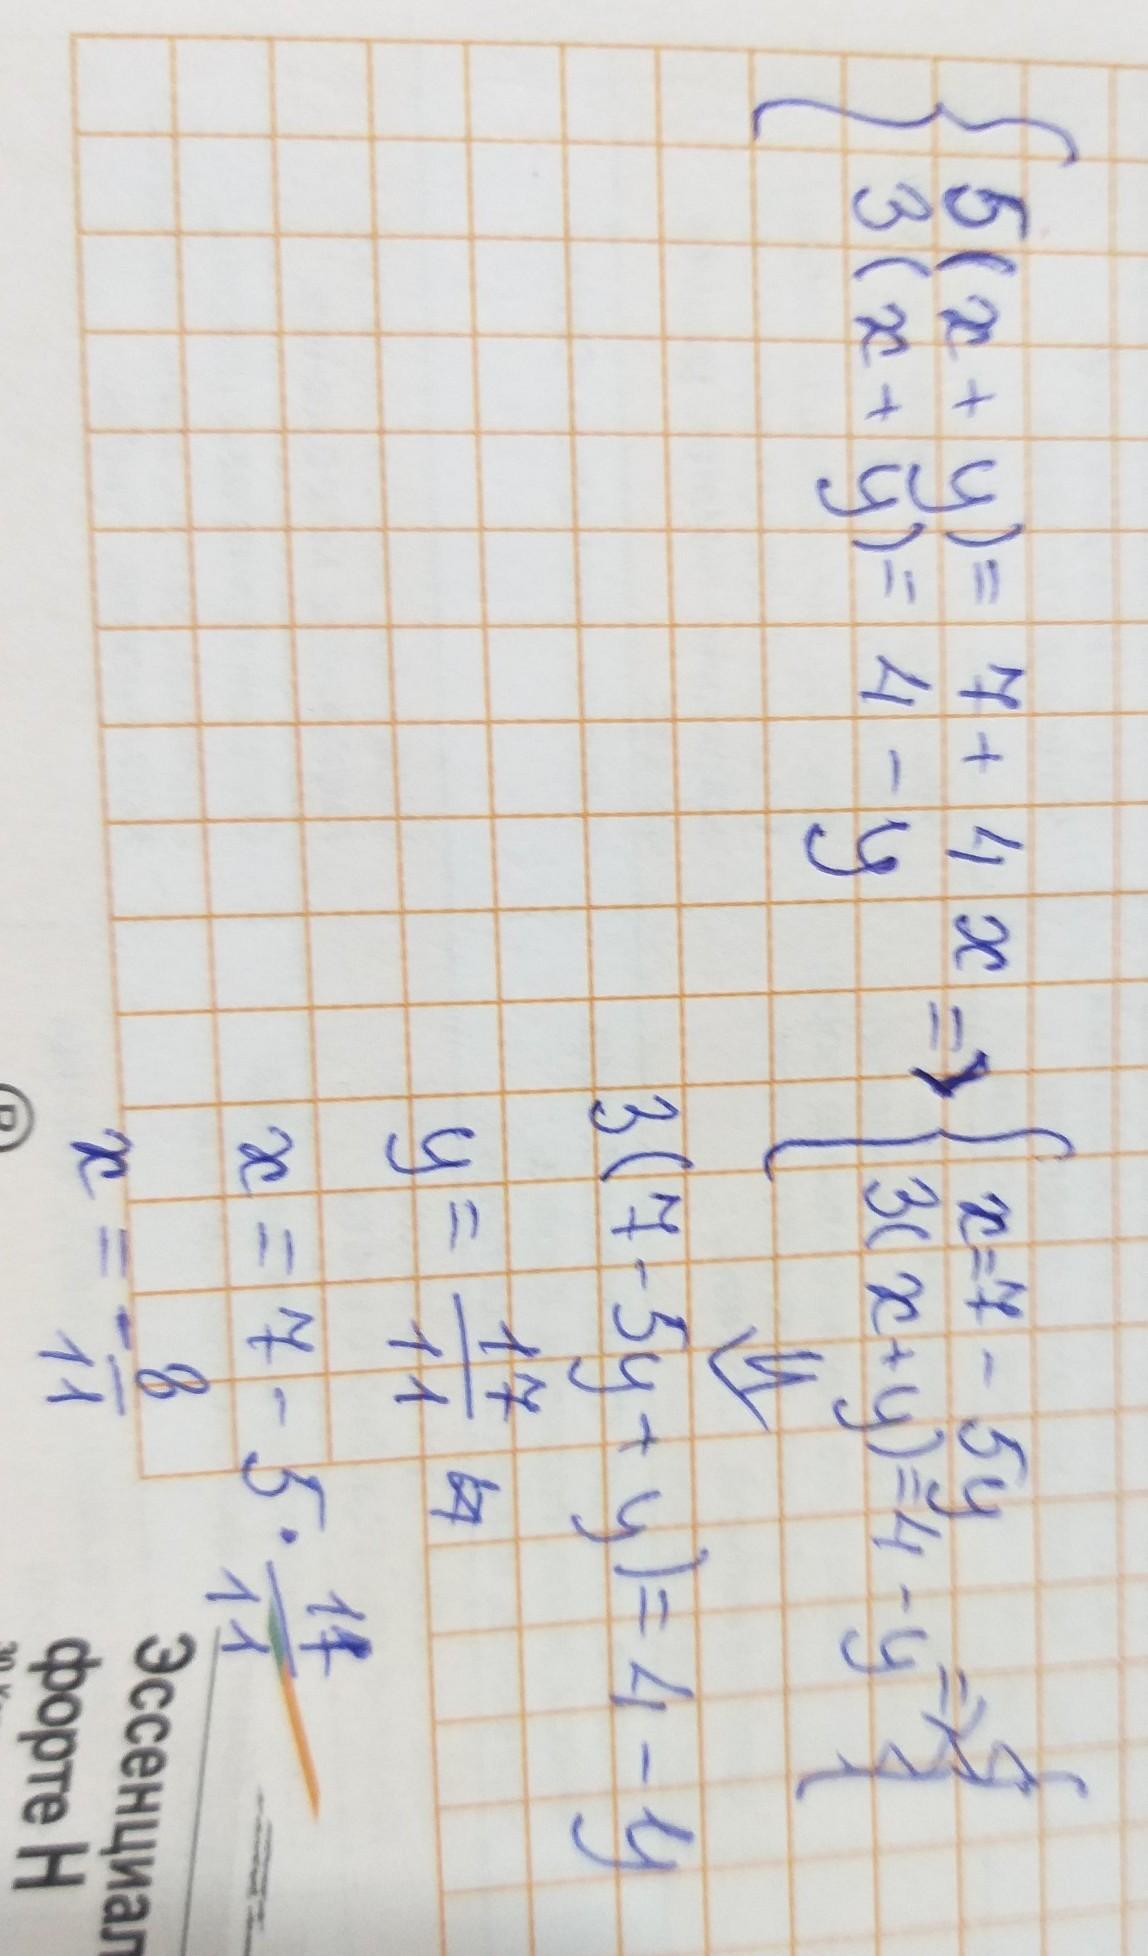 5(x+y)=7+4x => { x=7-5y =>
3(x+y)=4-y { 3(x+y)=4-y
⇓
3(7-5y+y)=4-y
y=17/11
x=7-5·17/11
x=-8/11
Эссенциал
форте Н